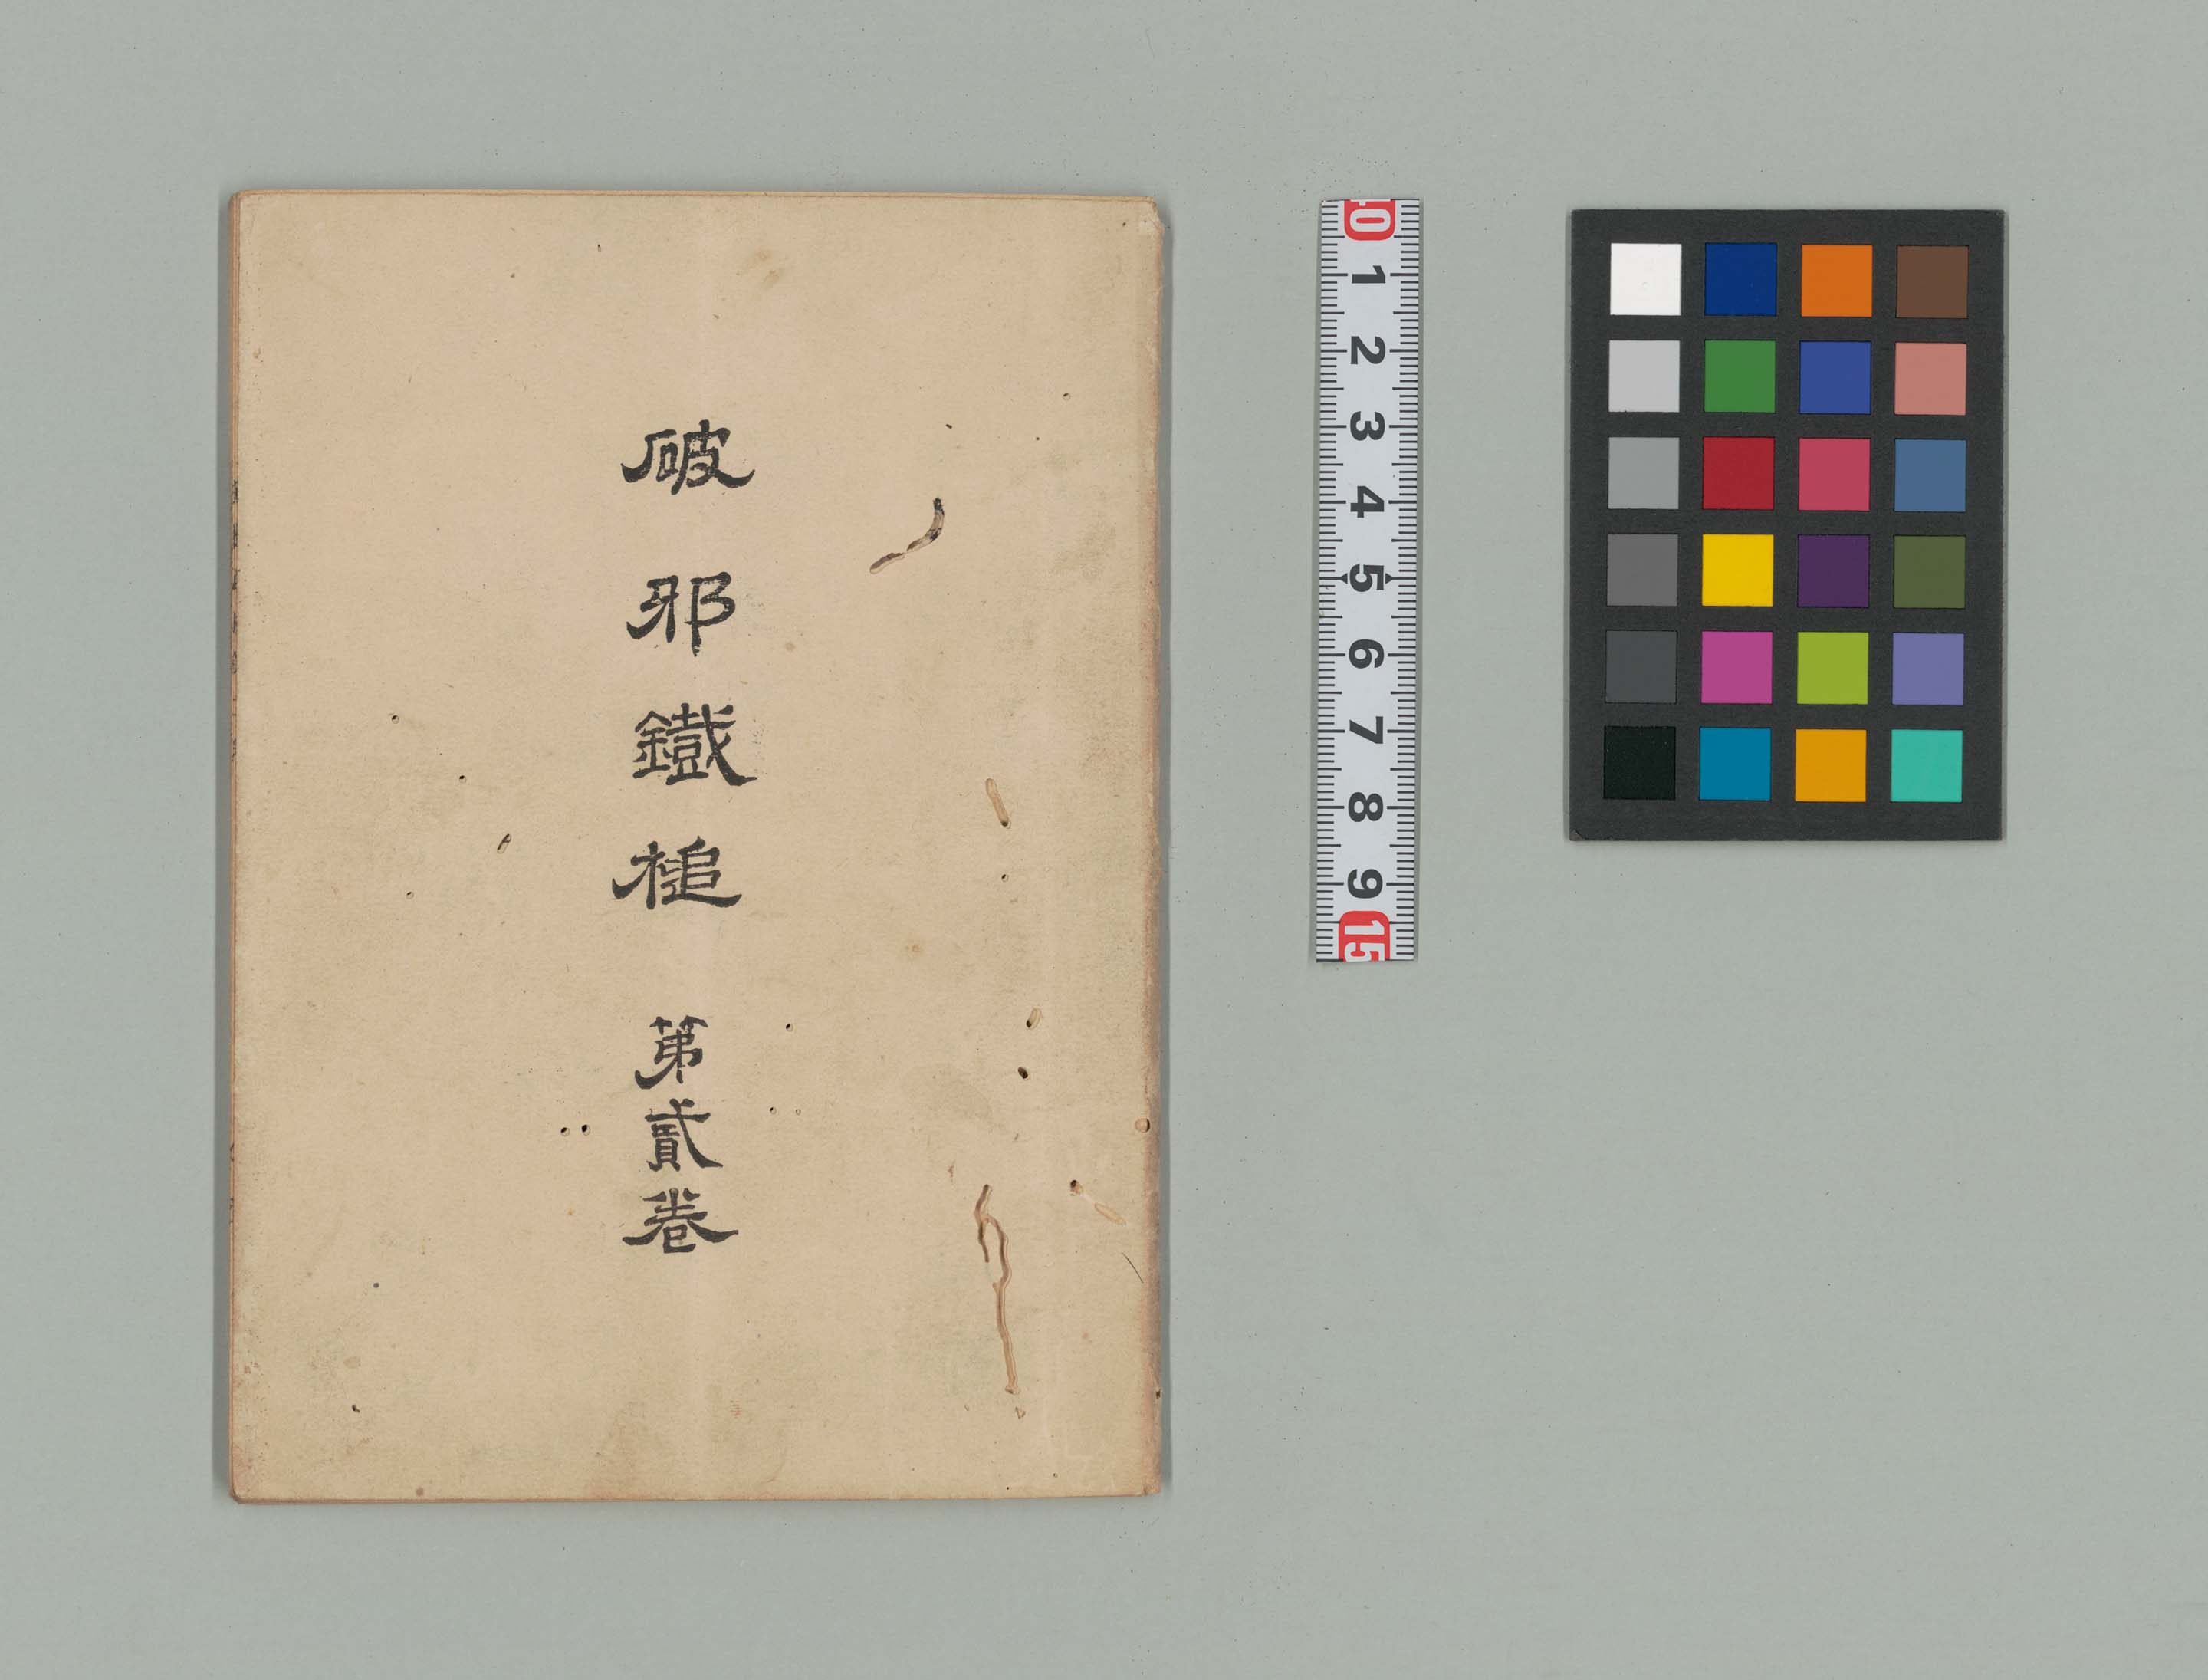 破邪鐵槌 第貳卷
10
1
2
3
4
5
6
7
8
9
15